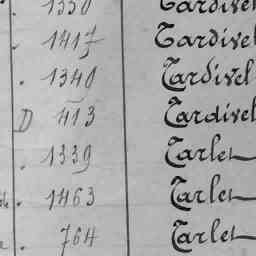 1330 Tardivel
1417 Tardivel
1340 Tardivel
D 413 Tardivel
1339 Tarlet
1463 Tarlet
764 Tarlet